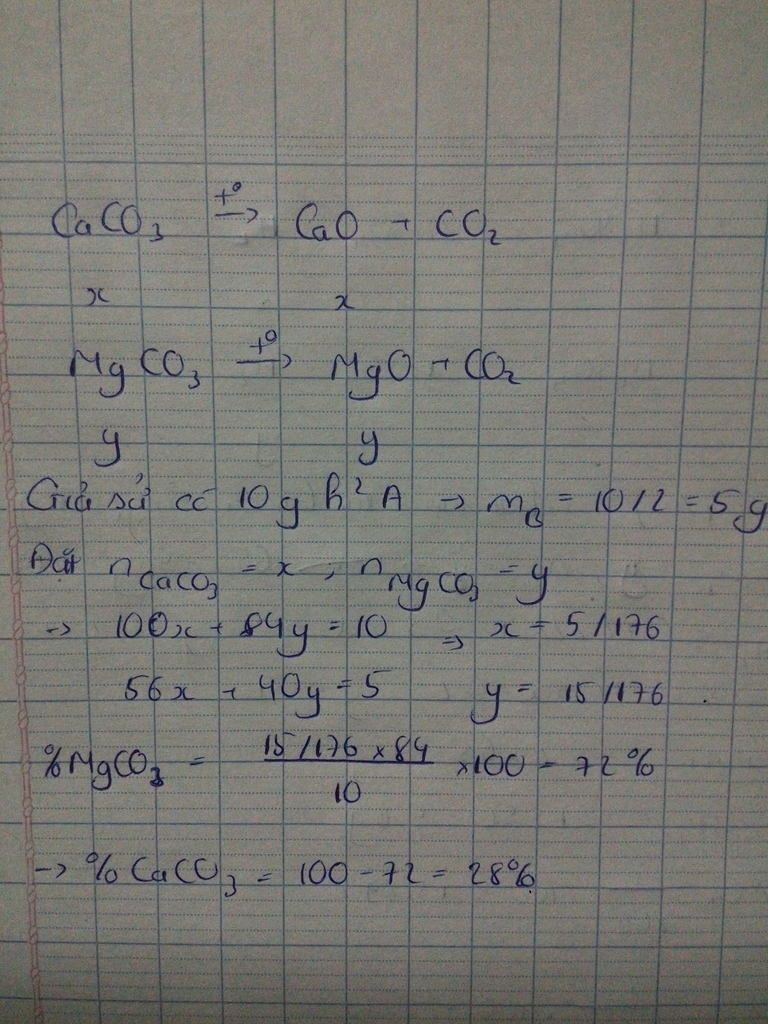 CaCO₃ —t°→ CaO + CO₂
x x
MgCO₃ —t°→ MgO + CO₂
y y
Giả sử có 10g h² A → m_B = 10/2 = 5g
Đặt n_CaCO₃ = x, n_MgCO₃ = y
→ 100x + 84y = 10 ⇒ x = 5/176
56x + 40y = 5 y = 15/176.
%MgCO₃ = (15/176 x 84)/10 x100 = 72%
→ %CaCO₃ = 100 - 72 = 28%.